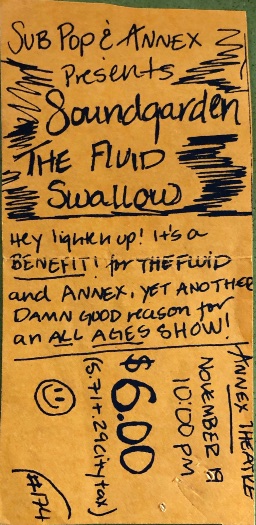 SUB POP & ANNEX
Presents
Soundgarden
THE FLUID
Swallow
Hey lighten up! It's a
BENEFIT! for THE FLUID
and ANNEX. YET ANOTHER
DAMN GOOD reason for
an ALL AGES SHOW!
ANNEX THEATRE
NOVEMBER 19
10:00 PM
$6.00
(5.71+.29 city tax)
#174